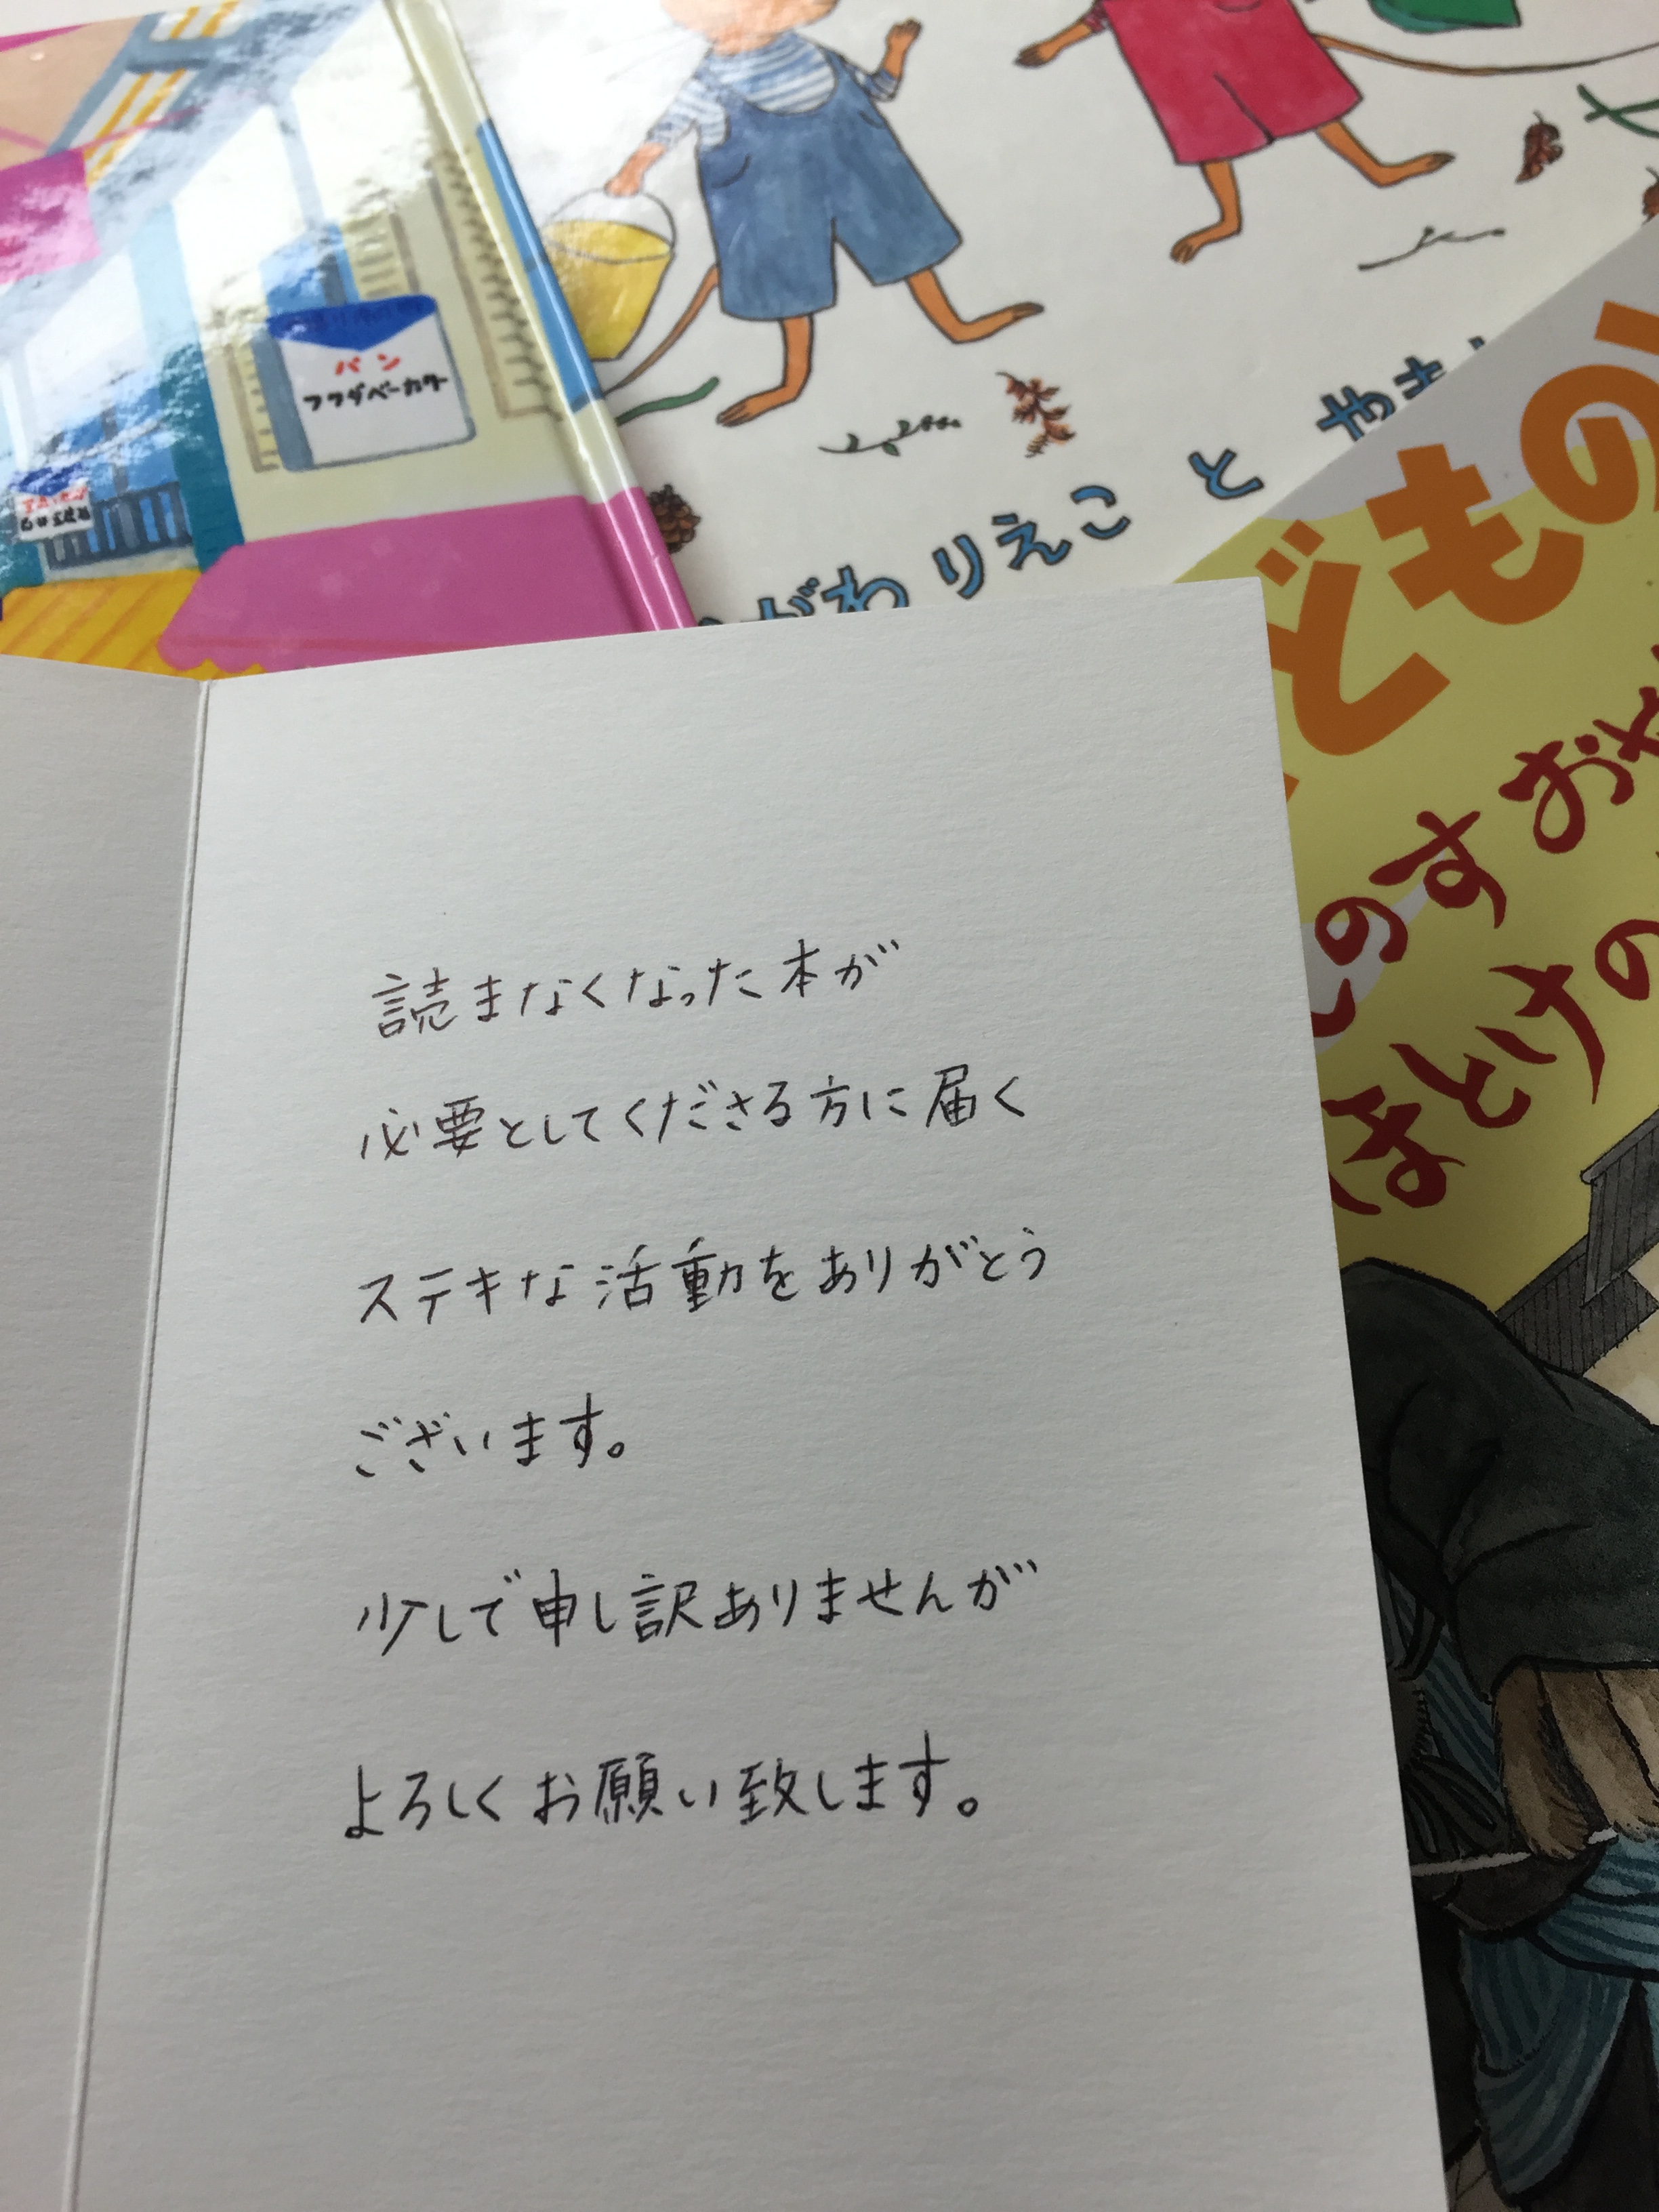 パン
フクダベーカリー
がわ りえこ と やま
どもの
のす おや
ほとけの
読まなくなった本が
必要としてくださる方に届く
ステキな活動をありがとう
ございます。
少しで申し訳ありませんが
よろしくお願い致します。